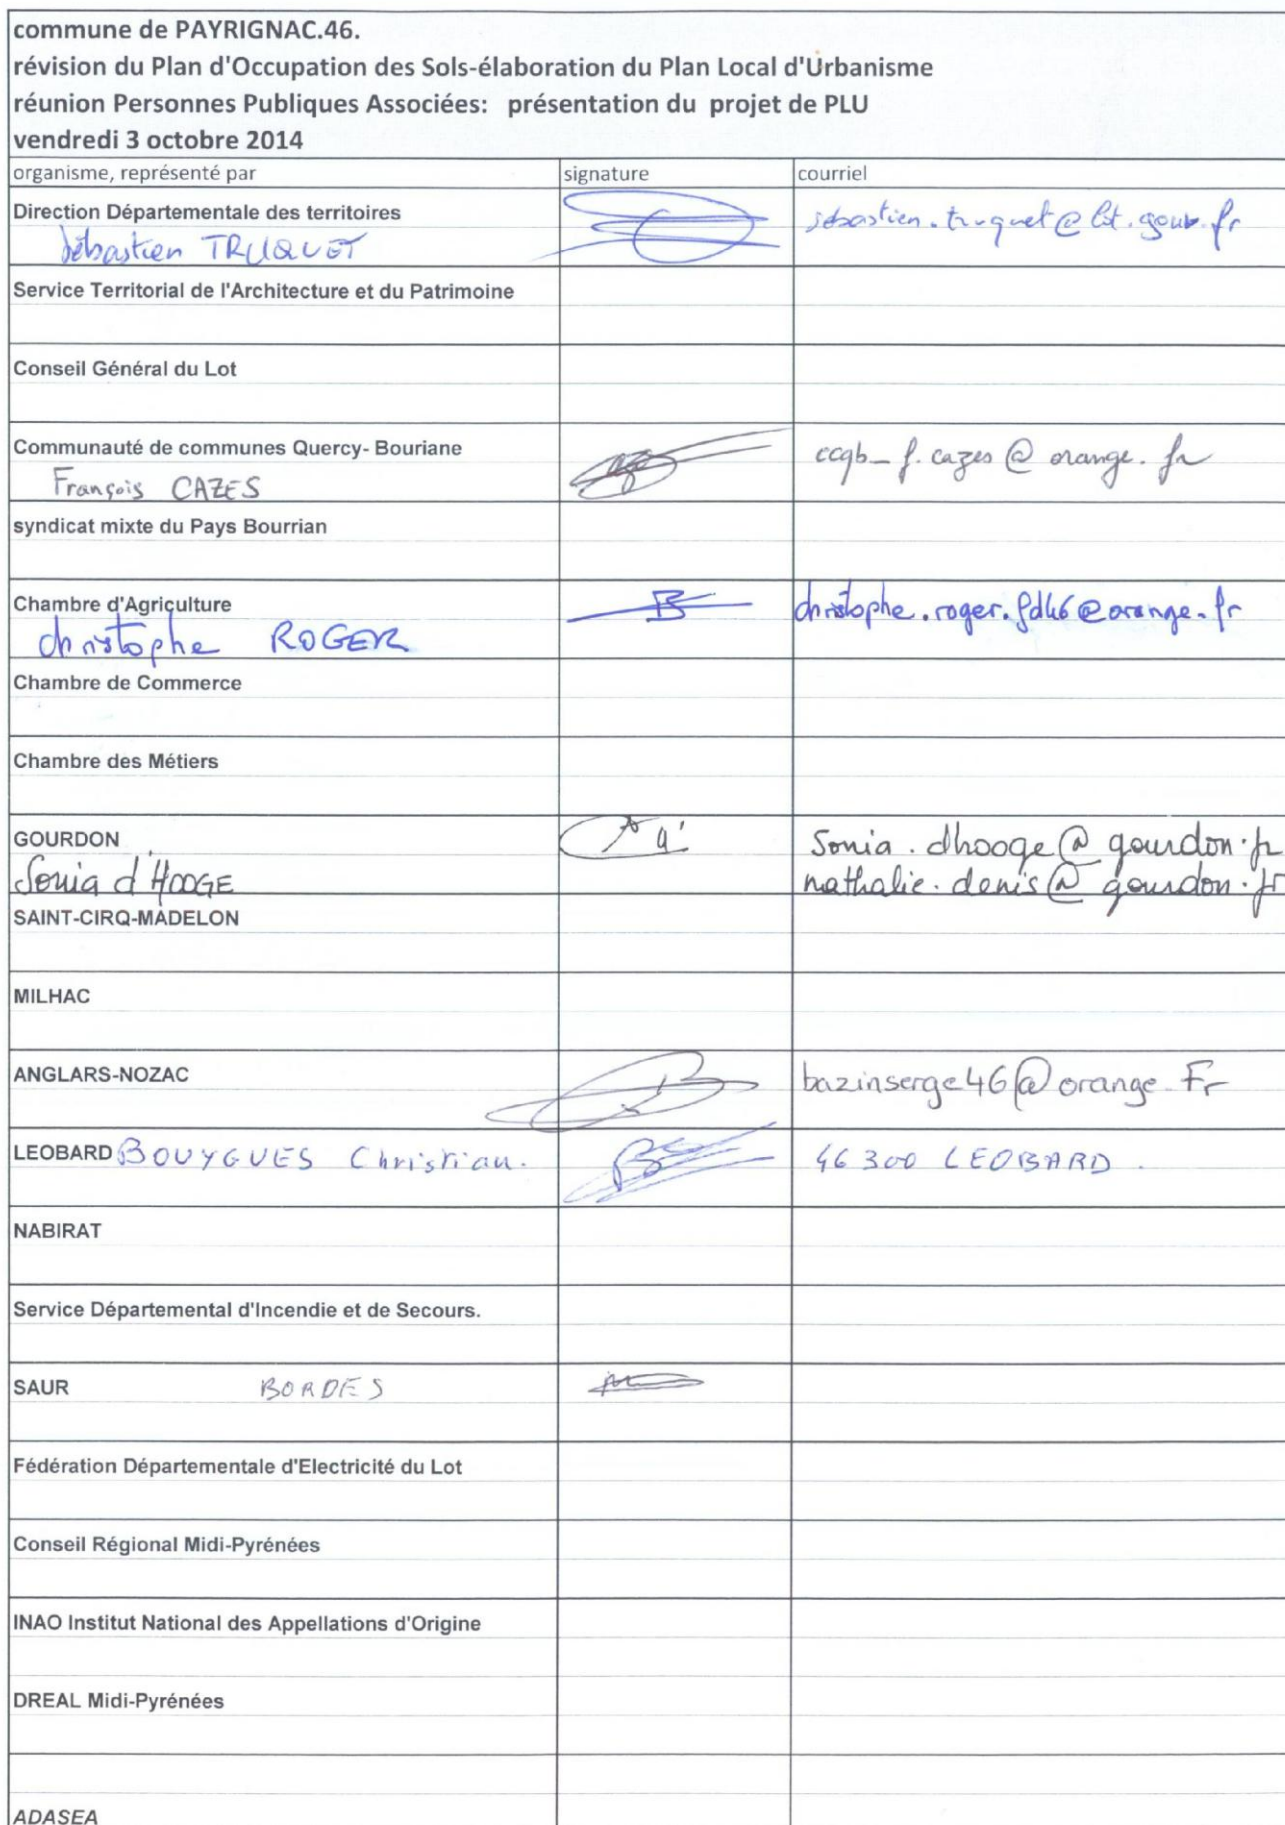 commune de PAYRIGNAC.46.
révision du Plan d'Occupation des Sols-élaboration du Plan Local d'Urbanisme
réunion Personnes Publiques Associées: présentation du projet de PLU
vendredi 3 octobre 2014
organisme, représenté par signature courriel
Direction Départementale des territoires
Sébastien TRUQUET sebastien.truquet@lot.gouv.fr
Service Territorial de l'Architecture et du Patrimoine
Conseil Général du Lot
Communauté de communes Quercy- Bouriane
François CAZES ccqb_f.cazes@orange.fr
syndicat mixte du Pays Bourrian
Chambre d'Agriculture
christophe ROGER christophe.roger.fd46@orange.fr
Chambre de Commerce
Chambre des Métiers
GOURDON sonia.dhooge@gourdon.fr
Sonia d'HOOGE nathalie.denis@gourdon.fr
SAINT-CIRQ-MADELON
MILHAC
ANGLARS-NOZAC bazinserge46@orange.Fr
LEOBARD BOUYGUES Christian. 46300 LEOBARD.
NABIRAT
Service Départemental d'Incendie et de Secours.
SAUR BORDES
Fédération Départementale d'Electricité du Lot
Conseil Régional Midi-Pyrénées
INAO Institut National des Appellations d'Origine
DREAL Midi-Pyrénées
ADASEA